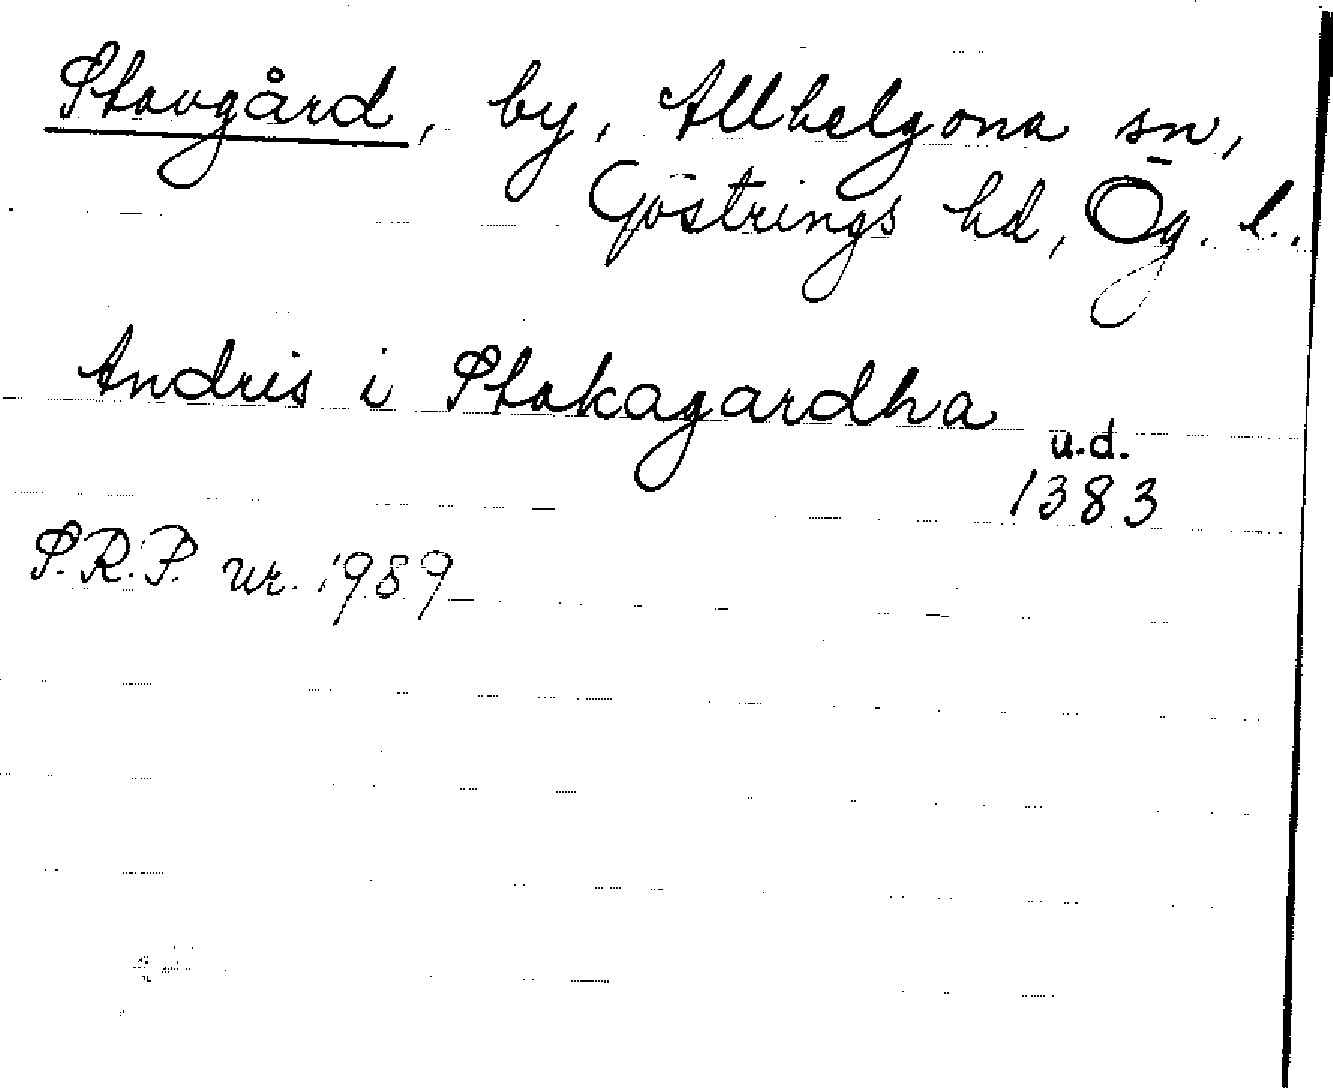 Stavgård, by, Allhelgona sn,
Göstrings hd, Ög. l.
Andris i Stakagardha
u.d.
1383
S.R.P. nr. 1989